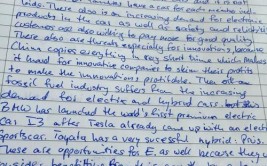 kids. There also is an increasing demand for electric
products in the car as well as safety and reliability
customers are also willing to pay more for good quality.
There also are threats especially for innovations, because
China copies everything in a very short time which makes
it hard for innovative companies to skim their profits
to make the innovations profitable. Then the
fossil fuel industry suffers from the increasing
demand for electric and hybrid cars
BMW has launched the world's first premium electric
car I3 after Tesla already came up with an electric
sportscar. Toyota has a very sucessful hybrid: Prius.
These are opportunities for as well because there